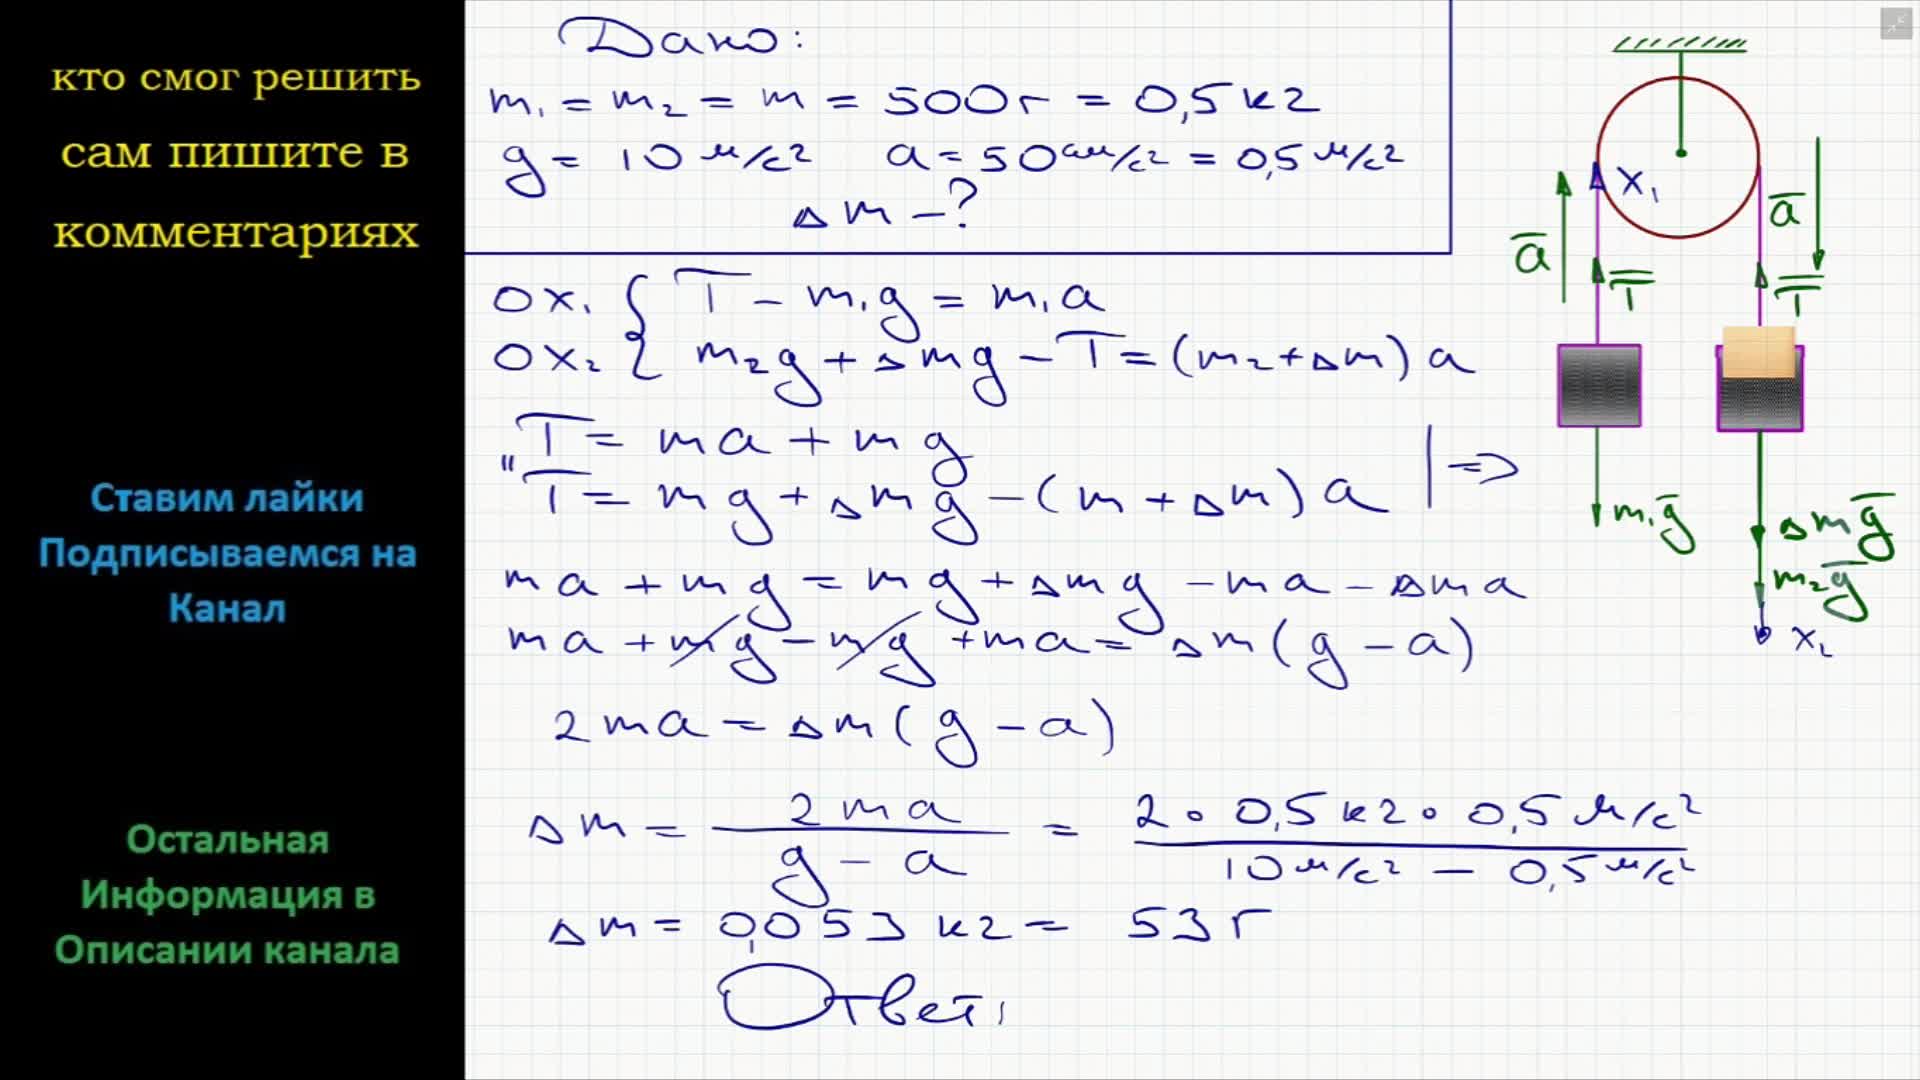 кто смог решить
сам пишите в
комментариях
Ставим лайки
Подписываемся на
Канал
Остальная
Информация в
Описании канала
Дано:
m₁ = m₂ = m = 500г = 0,5кг
g = 10 м/с² a = 50 см/с² = 0,5 м/с²
Δm – ?
OX₁ { T – m₁g = m₁a
OX₂ { m₂g + Δmg – T = (m₂ + Δm) a
T = ma + mg
"
T = mg + Δmg – (m + Δm) a | =>
ma + mg = mg + Δmg – ma – Δma
ma + mg – mg + ma = Δm (g – a)
2ma = Δm (g – a)
Δm = 2ma / (g – a) = 2 · 0,5кг · 0,5 м/с² / (10 м/с² – 0,5 м/с²)
Δm = 0,053 кг = 53 г
Ответ:
x₁
a̅
a̅
T̅
T̅
m₁g̅
Δmg̅
m₂g̅
x₂